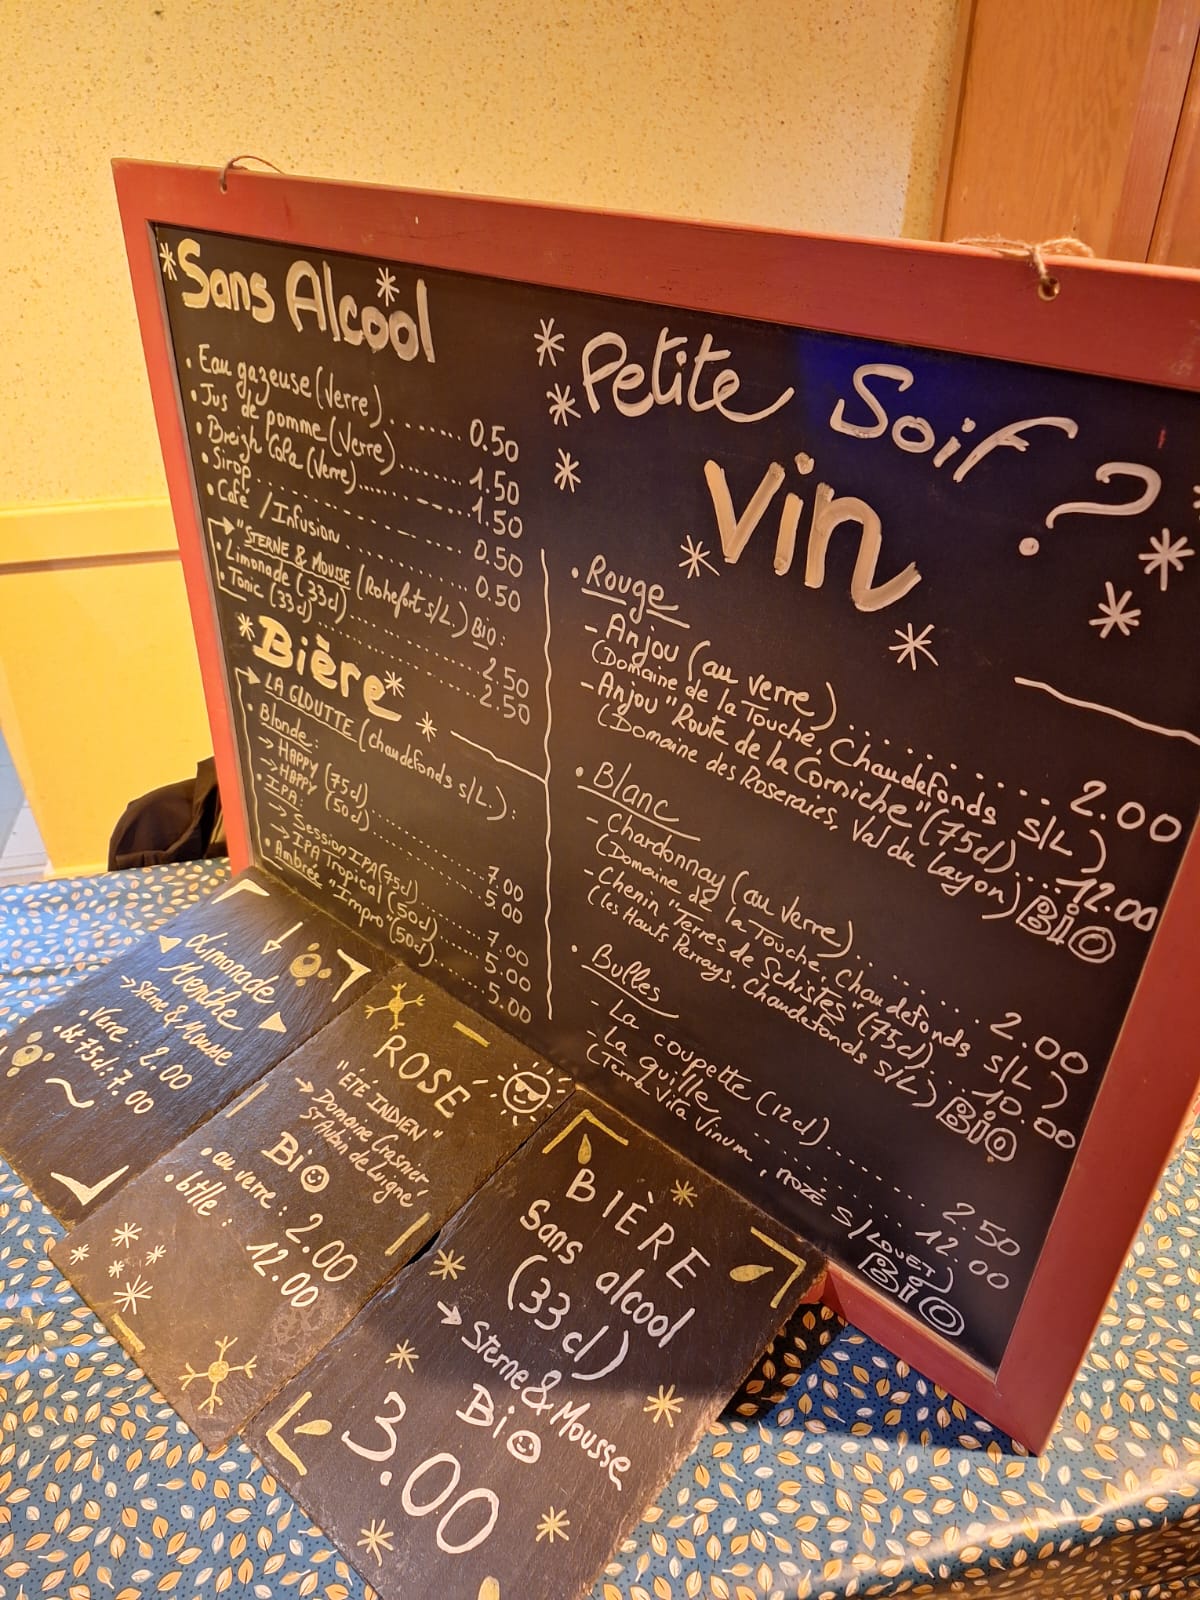 Sans Alcool
• Eau gazeuse (verre) ........ 0.50
• Jus de pomme (verre) ...... 1.50
• Breizh Cola (verre) ....... 1.50
• Sirop ........ 0.50
• Café / Infusion ........ 0.50
"STERNE & MOUSSE (Rohefort s/L) BIO :
• Limonade (33cl) ........ 2.50
• Tonic (33cl) ........ 2.50
Bière
LA GLOUTTE (chaudefonds s/L.) :
• Blonde :
→ HAPPY (75cl) ........ 7.00
→ HAPPY (50cl) ........ 5.00
• IPA :
→ Session IPA (75cl) ........ 7.00
→ IPA Tropical (50cl) ........ 5.00
• Ambrée "Impro" (50cl) ........ 5.00
Petite Soif ?
Vin
• Rouge
- Anjou (au verre) ........ 2.00
(Domaine de la Touche, Chaudefonds s/L)
- Anjou "Route de la Corniche" (75cl) .... 12.00
(Domaine des Roseraies, Val du Layon) BIO
• Blanc
- Chardonnay (au verre) ........ 2.00
(Domaine de la Touche, Chaudefonds s/L)
- Chenin "Terres de Schistes" (75cl) .... 10.00
(les Hauts Perrays, Chaudefonds s/L) BIO
• Bulles
- La coupette (12cl) ........ 2.50
- La quille ........ 12.00
(Terra Vita Vinum, MOZÉ S/LOUET) BIO
Limonade
Menthe
→ Sterne & Mousse
• Verre : 2.00
• bt 75cl : 7.00
ROSÉ
"ÉTÉ INDIEN"
→ Domaine Crasnier,
St Aubin de Luigné
BiO
• au verre : 2.00
• btlle : 12.00
BIÈRE
Sans alcool
(33 cl)
→ Sterne & Mousse
BiO
3.00